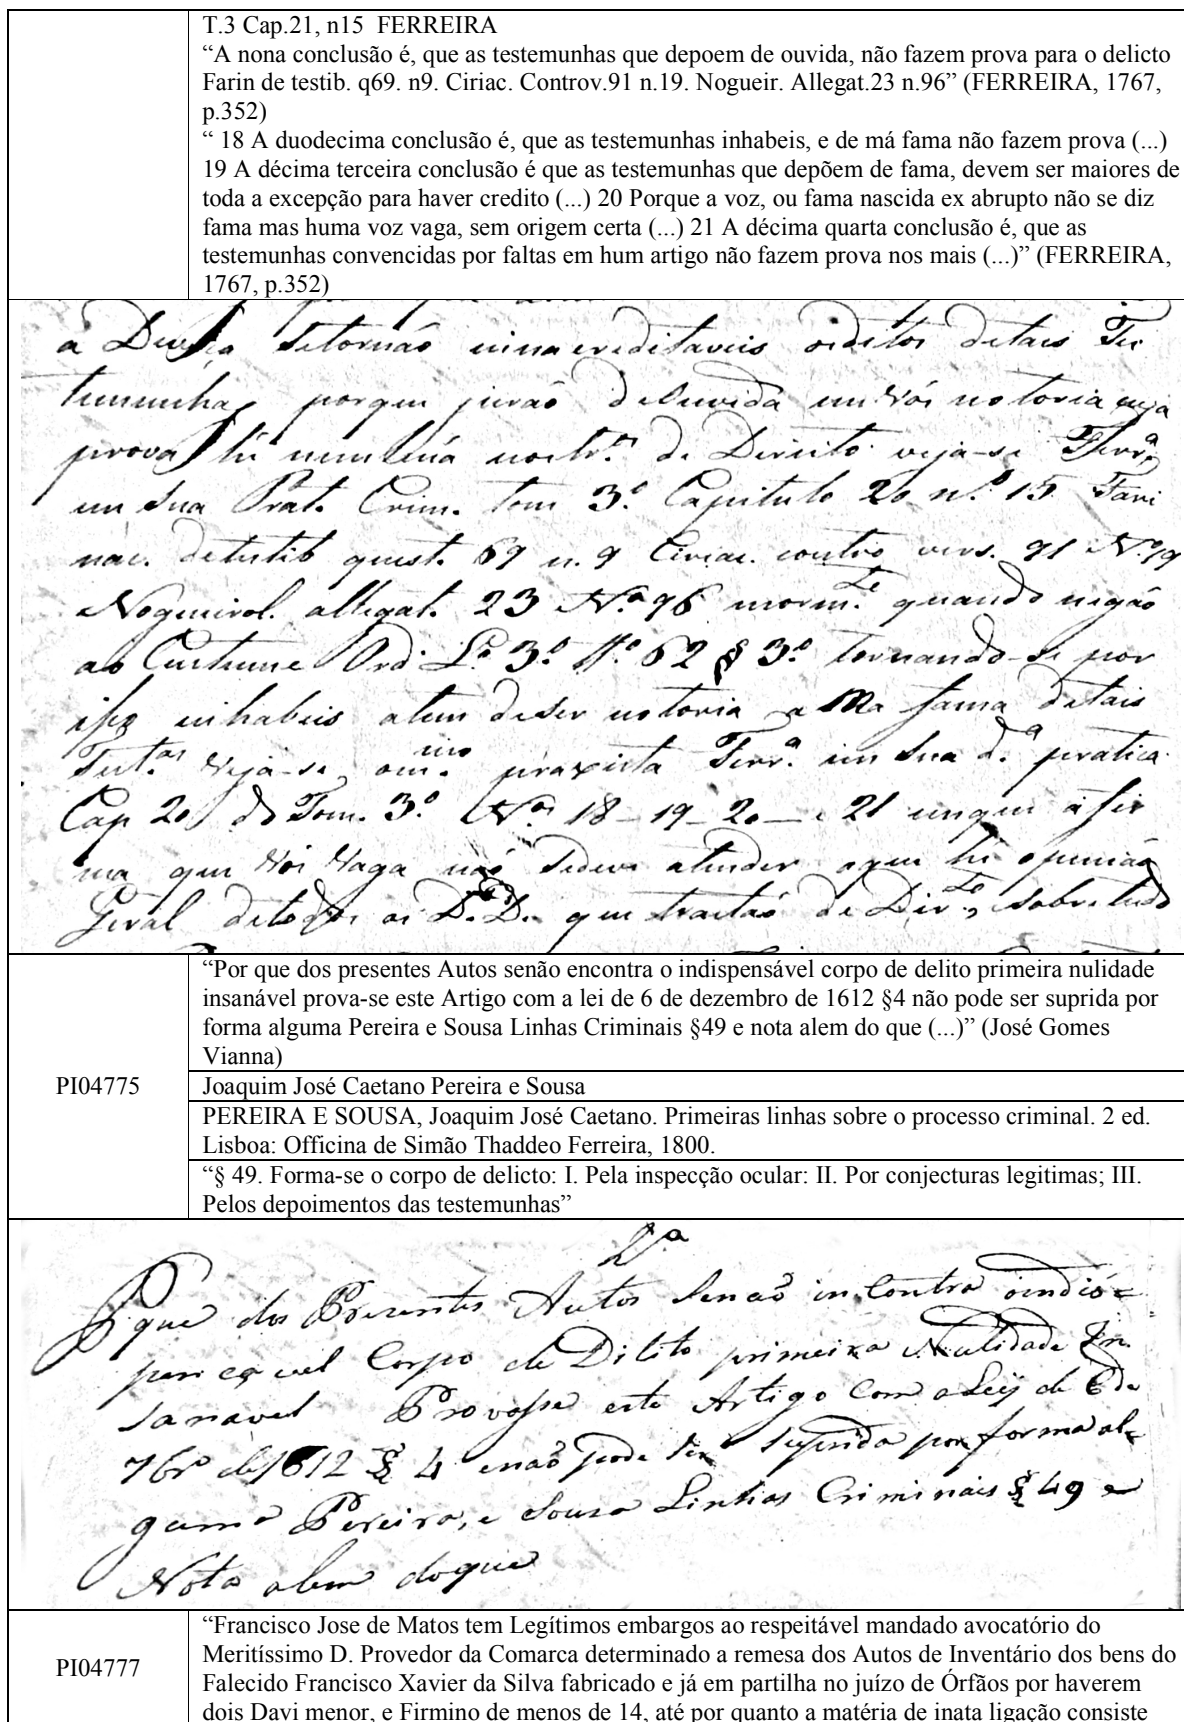 T.3 Cap.21, n15 FERREIRA
“A nona conclusão é, que as testemunhas que depoem de ouvida, não fazem prova para o delicto
Farin de testib. q69. n9. Ciriac. Controv.91 n.19. Nogueir. Allegat.23 n.96” (FERREIRA, 1767,
p.352)
“ 18 A duodecima conclusão é, que as testemunhas inhabeis, e de má fama não fazem prova (...)
19 A décima terceira conclusão é que as testemunhas que depõem de fama, devem ser maiores de
toda a excepção para haver credito (...) 20 Porque a voz, ou fama nascida ex abrupto não se diz
fama mas huma voz vaga, sem origem certa (...) 21 A décima quarta conclusão é, que as
testemunhas convencidas por faltas em hum artigo não fazem prova nos mais (...)” (FERREIRA,
1767, p.352)
a setornaó inacreditaveis oiditos detais Tes
temunhas porque juraó deouvida emvós notoria cuja
prova hé nenhúa de Direito veja-se Ferrª
em sua Prat. Crim. tom 3º Capitulo 20 n.º 15 Fari
nac. detestib quest. 69 n. 9 Ciriac. contro vers. 91 Nº 19
Nogueirol. allegat. 23 Nº 96 mormte quando negaó
ao Custume Ord. Lº 3º ttº 62 § 3º tornando-se por
isso inhabeis alem deser notoria a Má fama detais
Testas Veja-se, praxista Ferrª em sua dª pratica
Cap 20 do Tom. 3º Nos 18-19-20-e 21 emque afir
ma que Vós Vaga naó sedeve atender oque hé opiniaó
Geral detodos os D.D. que tractaó de Dirto, sobretudo
“Por que dos presentes Autos senão encontra o indispensável corpo de delito primeira nulidade
insanável prova-se este Artigo com a lei de 6 de dezembro de 1612 §4 não pode ser suprida por
forma alguma Pereira e Sousa Linhas Criminais §49 e nota alem do que (...)” (José Gomes
Vianna)
PI04775
Joaquim José Caetano Pereira e Sousa
PEREIRA E SOUSA, Joaquim José Caetano. Primeiras linhas sobre o processo criminal. 2 ed.
Lisboa: Officina de Simão Thaddeo Ferreira, 1800.
“§ 49. Forma-se o corpo de delicto: I. Pela inspecção ocular: II. Por conjecturas legitimas; III.
Pelos depoimentos das testemunhas”
2ª
P que dos Prezentes Autos senaó incontra oindis=
pençavel Corpo de Dilito primeira Nulidade In
sanavel Provasse este Artigo Com aLeij de 6 de
Xbrº de 1612 § 4 enaó pode ser suprida por forma al=
guma Pereira, e Souza Linhas Criminais § 49 e
Nota alem doque
PI04777
“Francisco Jose de Matos tem Legítimos embargos ao respeitável mandado avocatório do
Meritíssimo D. Provedor da Comarca determinado a remesa dos Autos de Inventário dos bens do
Falecido Francisco Xavier da Silva fabricado e já em partilha no juízo de Órfãos por haverem
dois Davi menor, e Firmino de menos de 14, até por quanto a matéria de inata ligação consiste